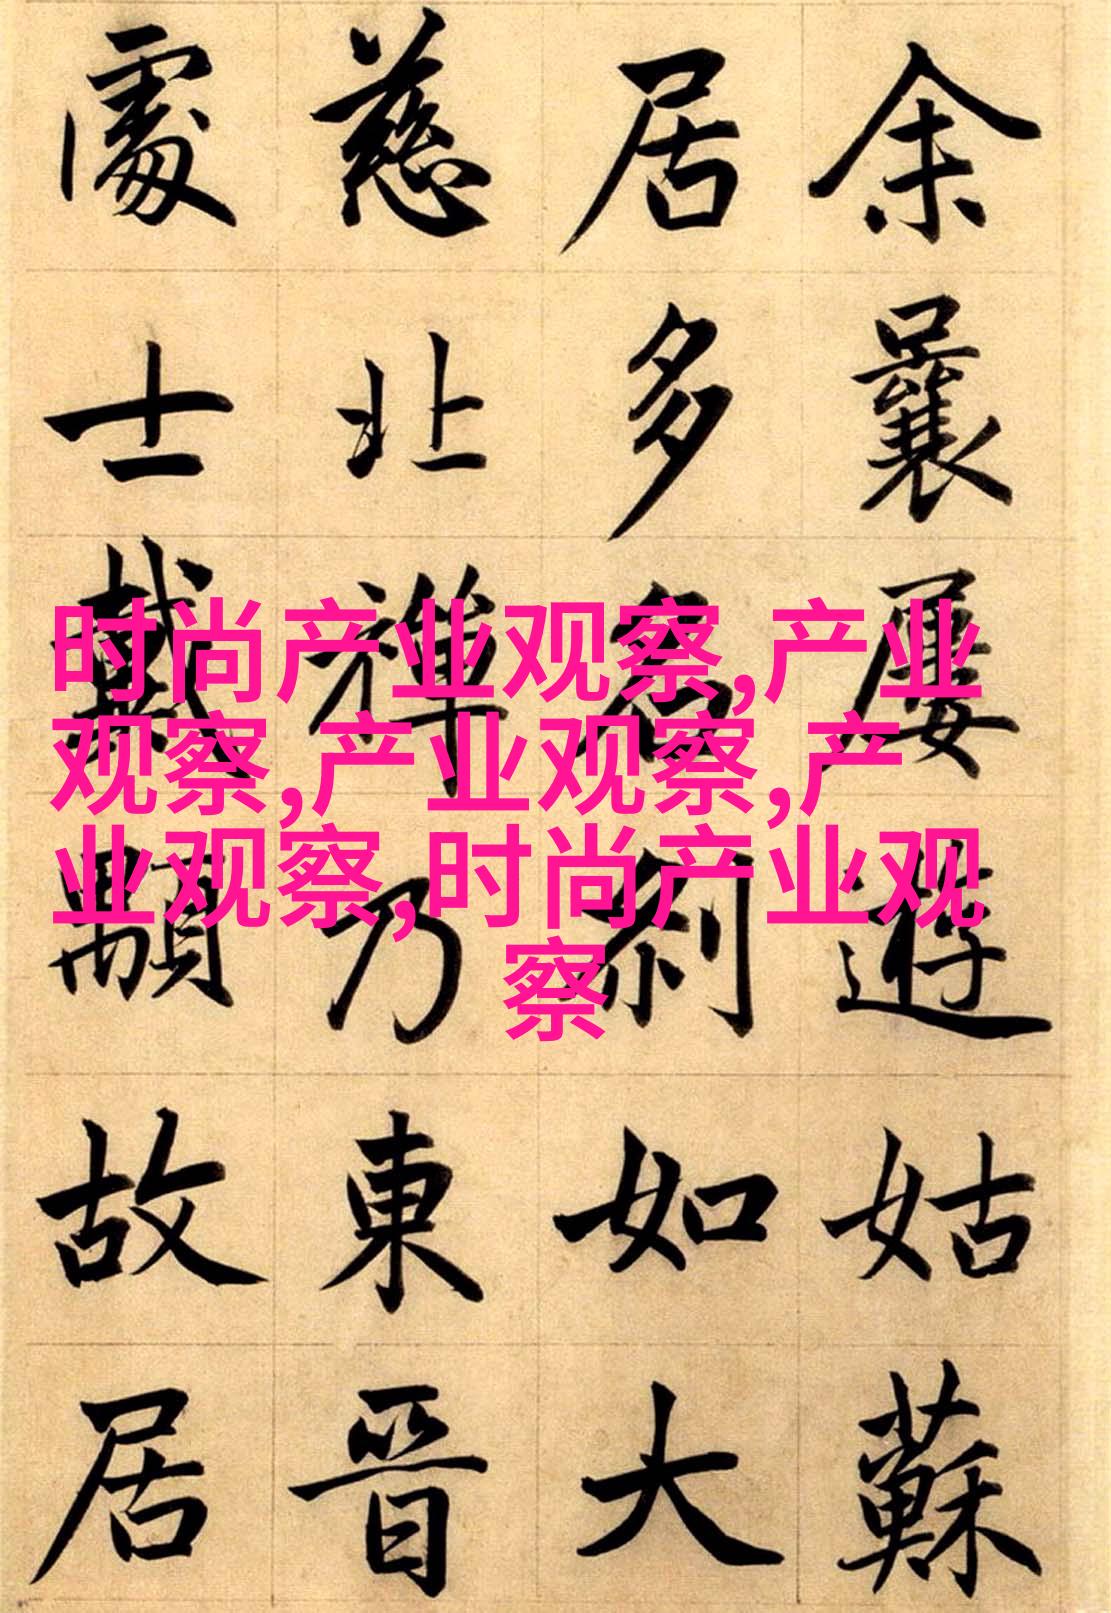 余曩屢遊姑蘇
居多名刹如大
慈北禪乃東晉
處士戴顒故居
时尚产业观察,产业
观察,产业观察,产
业观察,时尚产业观
察